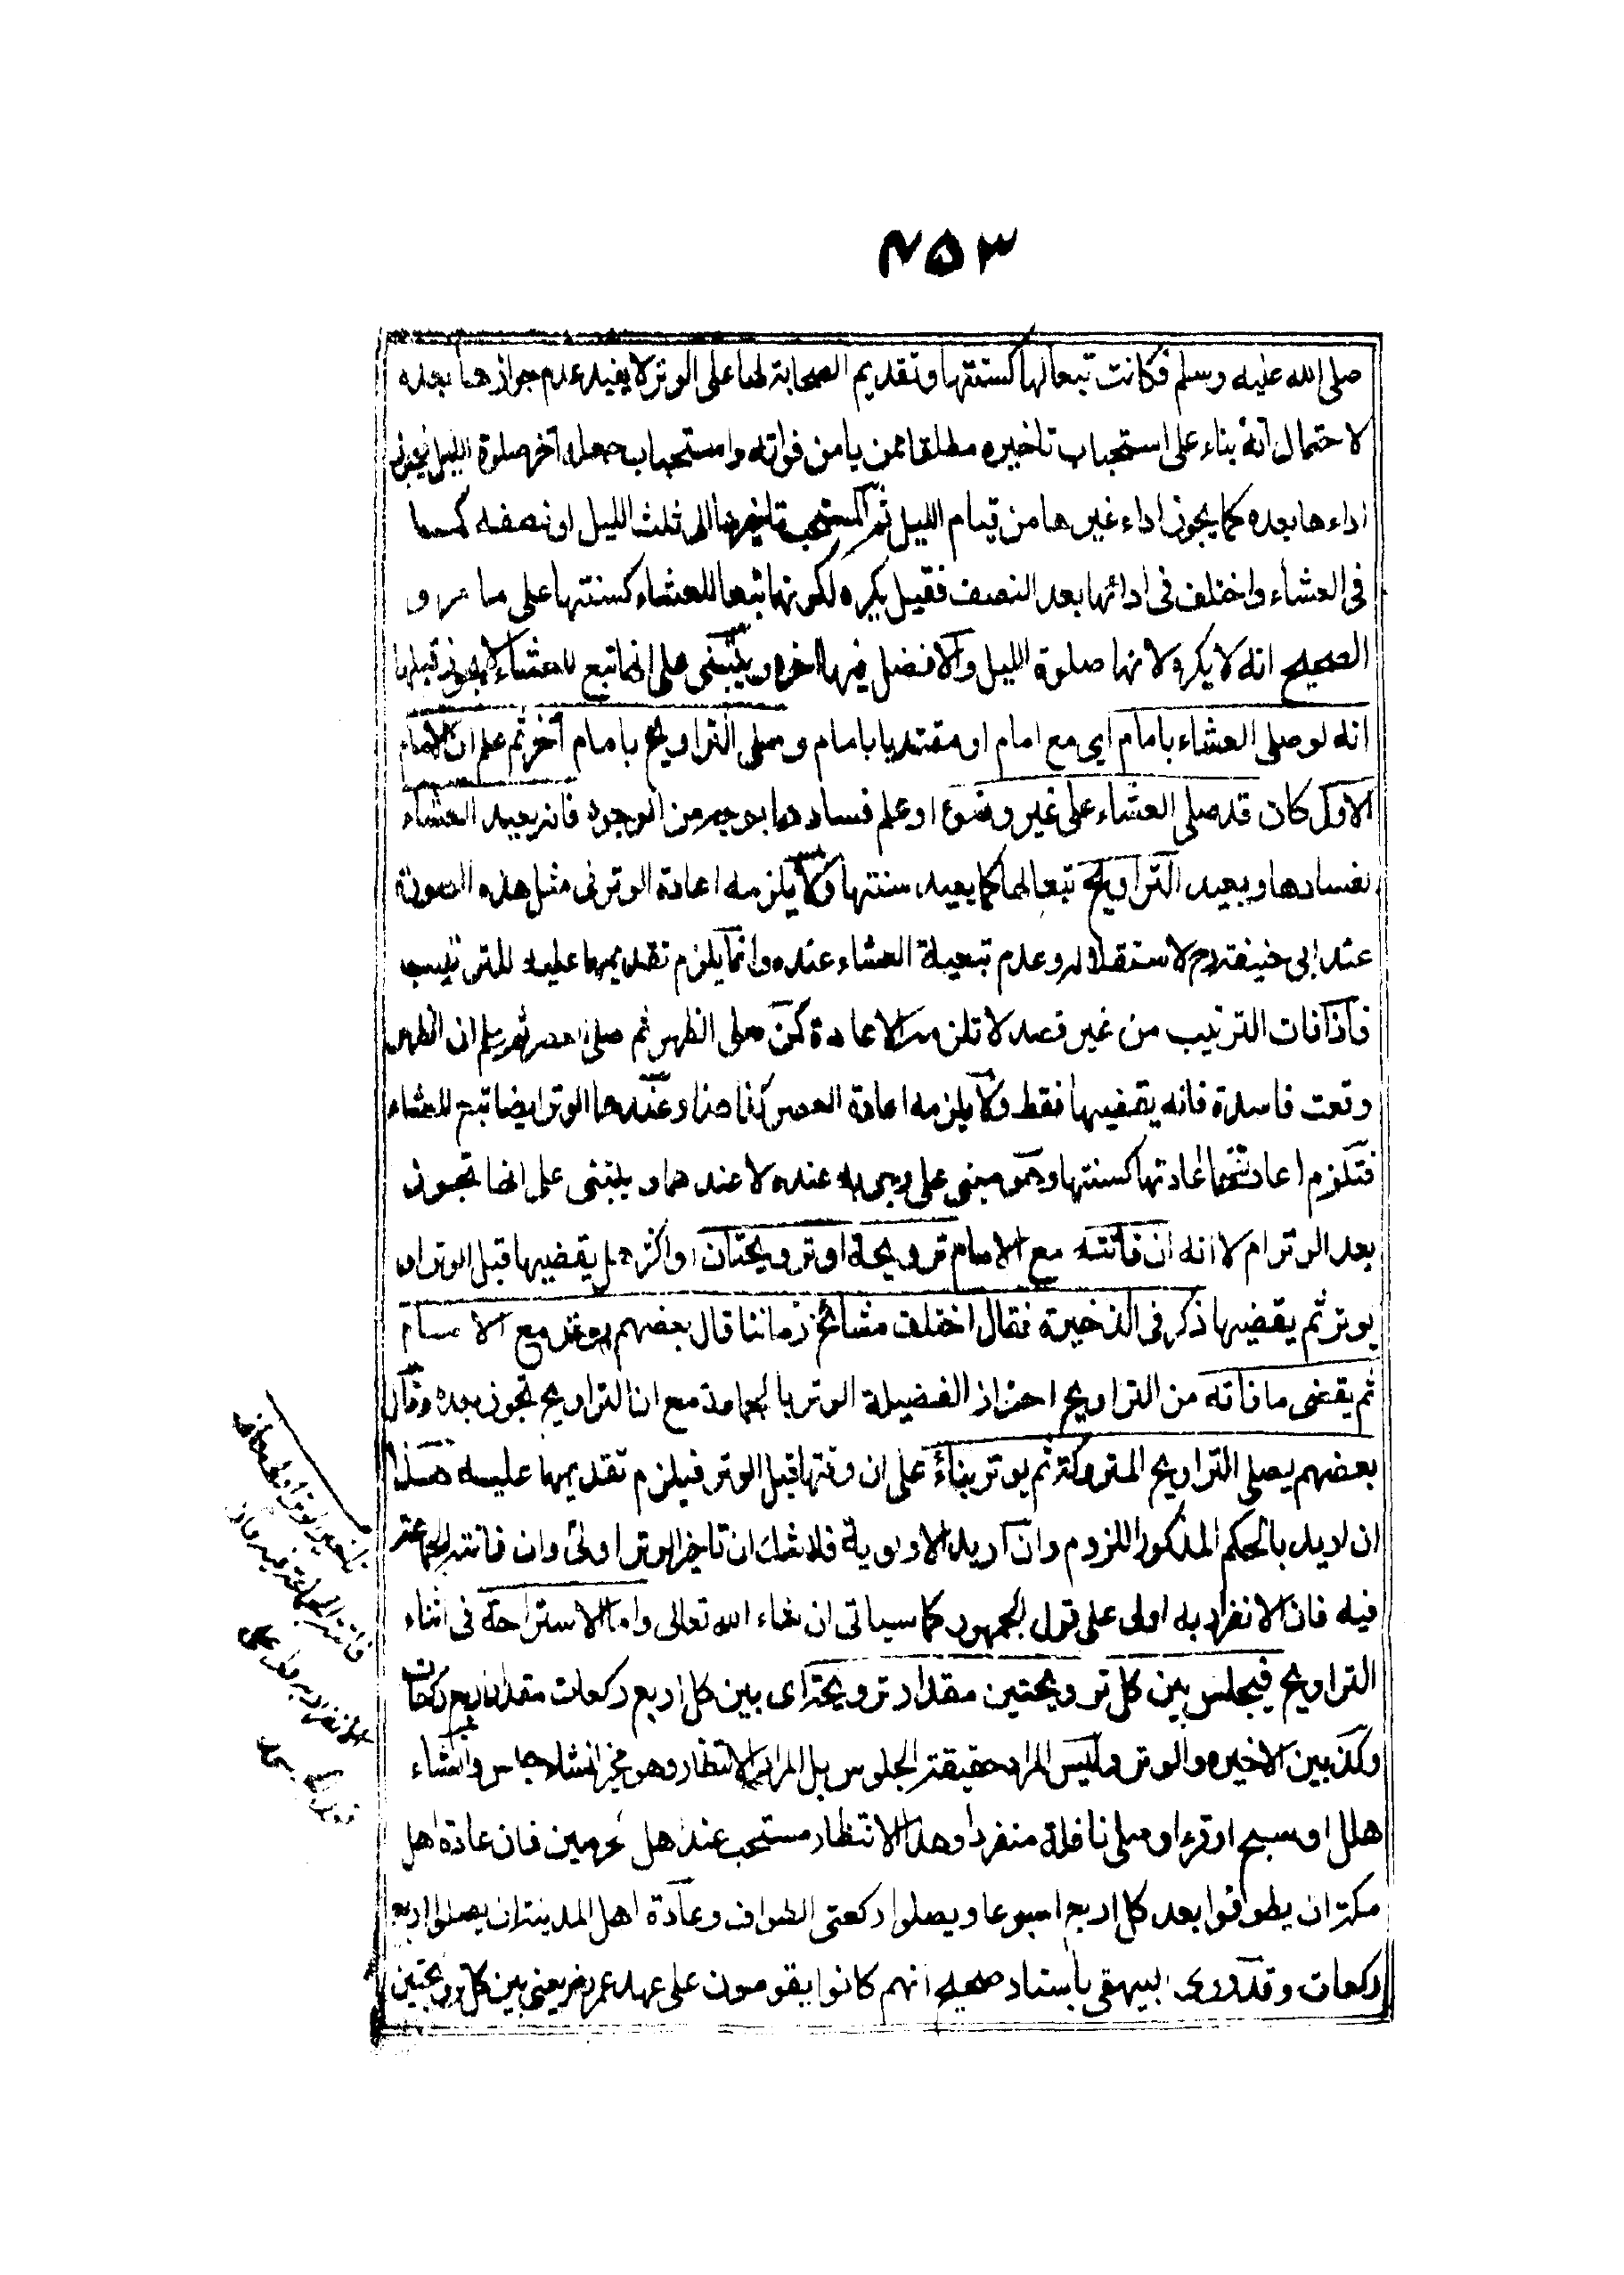 ٤٥٣
صلى الله عليه وسلم فكانت تبعا لها كسنتها وتقديم الصحابة لها على الوتر لا يفيد عدم جوازها بعده
لاحتمال انه بناء على استحباب تاخيره مطلقا ممن يامن فواته واستحباب جعله آخر صلوة الليل فيجوز
اداءها بعده كما يجوز اداء غيرها من قيام الليل ثم المستحب تاخيرها الى ثلث الليل او نصفه كما
فى العشاء واختلف فى ادائها بعد النصف فقيل يكره لكونها تبعا للعشاء كسنتها على ما مر و
الصحيح انه لا يكره لانها صلوة الليل والافضل فيها اخره ويبتنى على انها تبع للعشاء لا يجوز قبلها
انه لو صلى العشاء بامام اى مع امام او مقتديا بامام وصلى التراويح بامام آخر ثم علم ان الامام
الاول كان قد صلى العشاء على غير وضوء او علم فسادها بوجه من الوجوه فانه يعيد العشاء
لفسادها ويعيد التراويح تبعا لها كما يعيد سنتها ولا يلزمه اعادة الوتر فى مثل هذه الصورة
عند ابى حنيفة رح لاستقلاله وعدم تبعية العشاء عنده وانما يلزم تقديمها عليه للترتيب
فاذا فات الترتيب من غير قصد لا تلزمه الاعادة كمن صلى الظهر ثم صلى العصر ثم علم ان الظهر
وقعت فاسدة فانه يقضيها فقط ولا يلزمه اعادة العصر كذا هذا وعندهما الوتر ايضا تبع للعشاء
فتلزم اعادته باعادتها كسنتها وهو مبنى على وجوبه عنده لا عندهما ويبتنى على انها تجوز
بعد الوتر ام لا انه ان فاتته مع الامام ترويحة او ترويحتان او اكثر هل يقضيها قبل الوتر او
يوتر ثم يقضيها ذكر فى الذخيرة فقال اختلف مشائخ زماننا قال بعضهم يوتر مع الامام
ثم يقضى ما فاته من التراويح احرازا لفضيلة الوتر بالجماعة مع ان التراويح تجوز بعده وقال
بعضهم يصلى التراويح المتروكة ثم يوتر بناءً على ان وقتها قبل الوتر فيلزم تقديمها عليه هذا
ان اريد بالحكم المذكور اللزوم وان اريد الاولوية فلا شك ان تاخير الوتر اولى وان فاتته الجماعة
فيه فان الانفراد به اولى على قول الجمهور كما سياتى ان شاء الله تعالى واما الاستراحة فى اثناء
التراويح فيجلس بين كل ترويحتين مقدار ترويحة اى بين كل اربع ركعات مقدار اربع ركعات
وكذا بين الاخيرة والوتر وليس المراد حقيقة الجلوس بل المراد الانتظار وهو مخير ان شاء جلس وان شاء
هلل او سبح او قرء او صلى نافلة منفردا وهذا الانتظار مستحب عند اهل الحرمين فان عادة اهل
مكة ان يطوفوا بعد كل اربع اسبوعا ويصلوا ركعتى الطواف وعادة اهل المدينة ان يصلوا اربع
ركعات وقد روى البيهقى باسناد صحيح انهم كانوا يقومون على عهد عمر رض يعنى بين كل ترويحتين